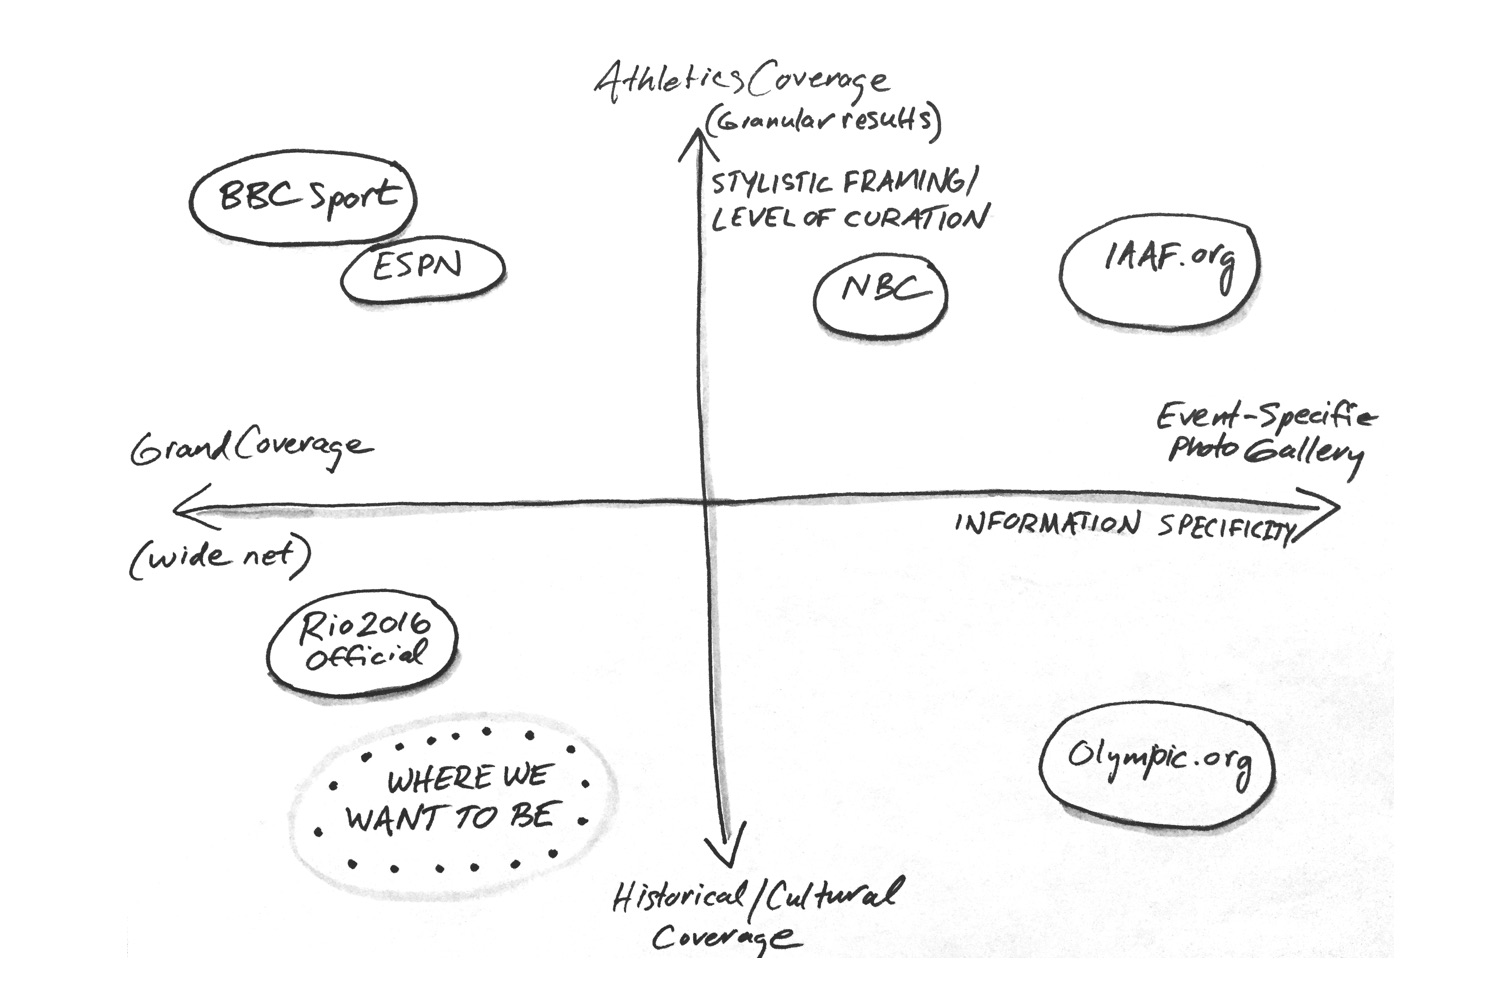 Athletics Coverage
(Granular results)
STYLISTIC FRAMING/
LEVEL OF CURATION
BBC Sport
ESPN
NBC
IAAF.org
Grand Coverage
(wide net)
Event-Specific
Photo Gallery
INFORMATION SPECIFICITY
Rio 2016
Official
WHERE WE
WANT TO BE
Olympic.org
Historical/Cultural
Coverage